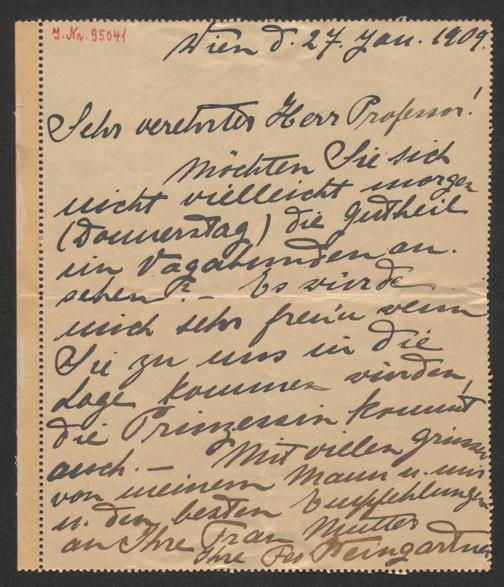 J.Nr. 95041
Wien d. 27. Jan. 1909.
Sehr verehrter Herr Professor!
Möchten Sie sich
nicht vielleicht morgen
(Donnerstag) die Gutheil
im Vagabunden an-
sehen? – Es würde
mich sehr freu'n wenn
Sie zu uns in die
Loge kommen würden,
die Prinzessin kommt
auch. – Mit vielen Grüssen
von meinem Mann u. mir
u. den besten Empfehlungen
an Ihre Frau Mutter
Ihre Weingartner